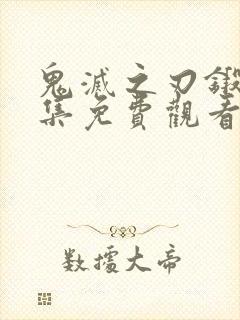 鬼滅之刃鍛
集免費觀看
数擂大帝